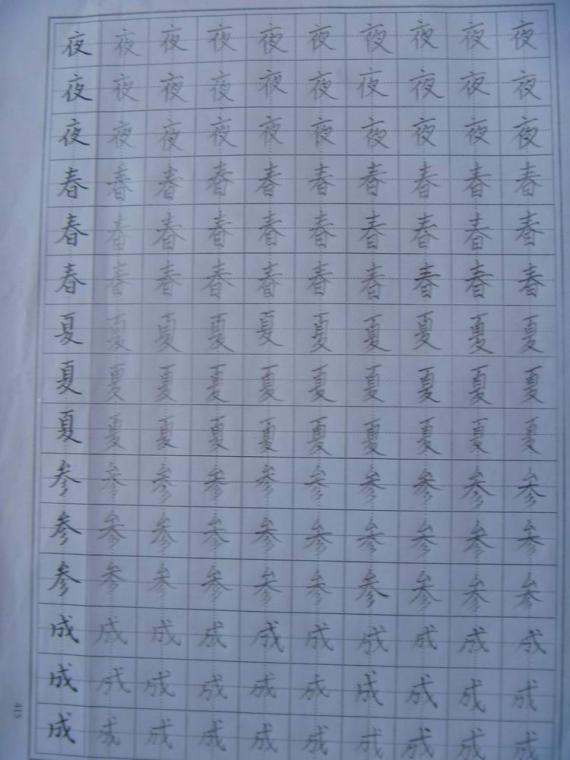 夜夜夜夜夜夜夜夜夜夜
夜夜夜夜夜夜夜夜夜夜
夜夜夜夜夜夜夜夜夜夜
春春春春春春春春春春
春春春春春春春春春春
春春春春春春春春春春
夏夏夏夏夏夏夏夏夏夏
夏夏夏夏夏夏夏夏夏夏
夏夏夏夏夏夏夏夏夏夏
参参参参参参参参参参
参参参参参参参参参参
参参参参参参参参参参
成成成成成成成成成成
成成成成成成成成成成
成成成成成成成成成成